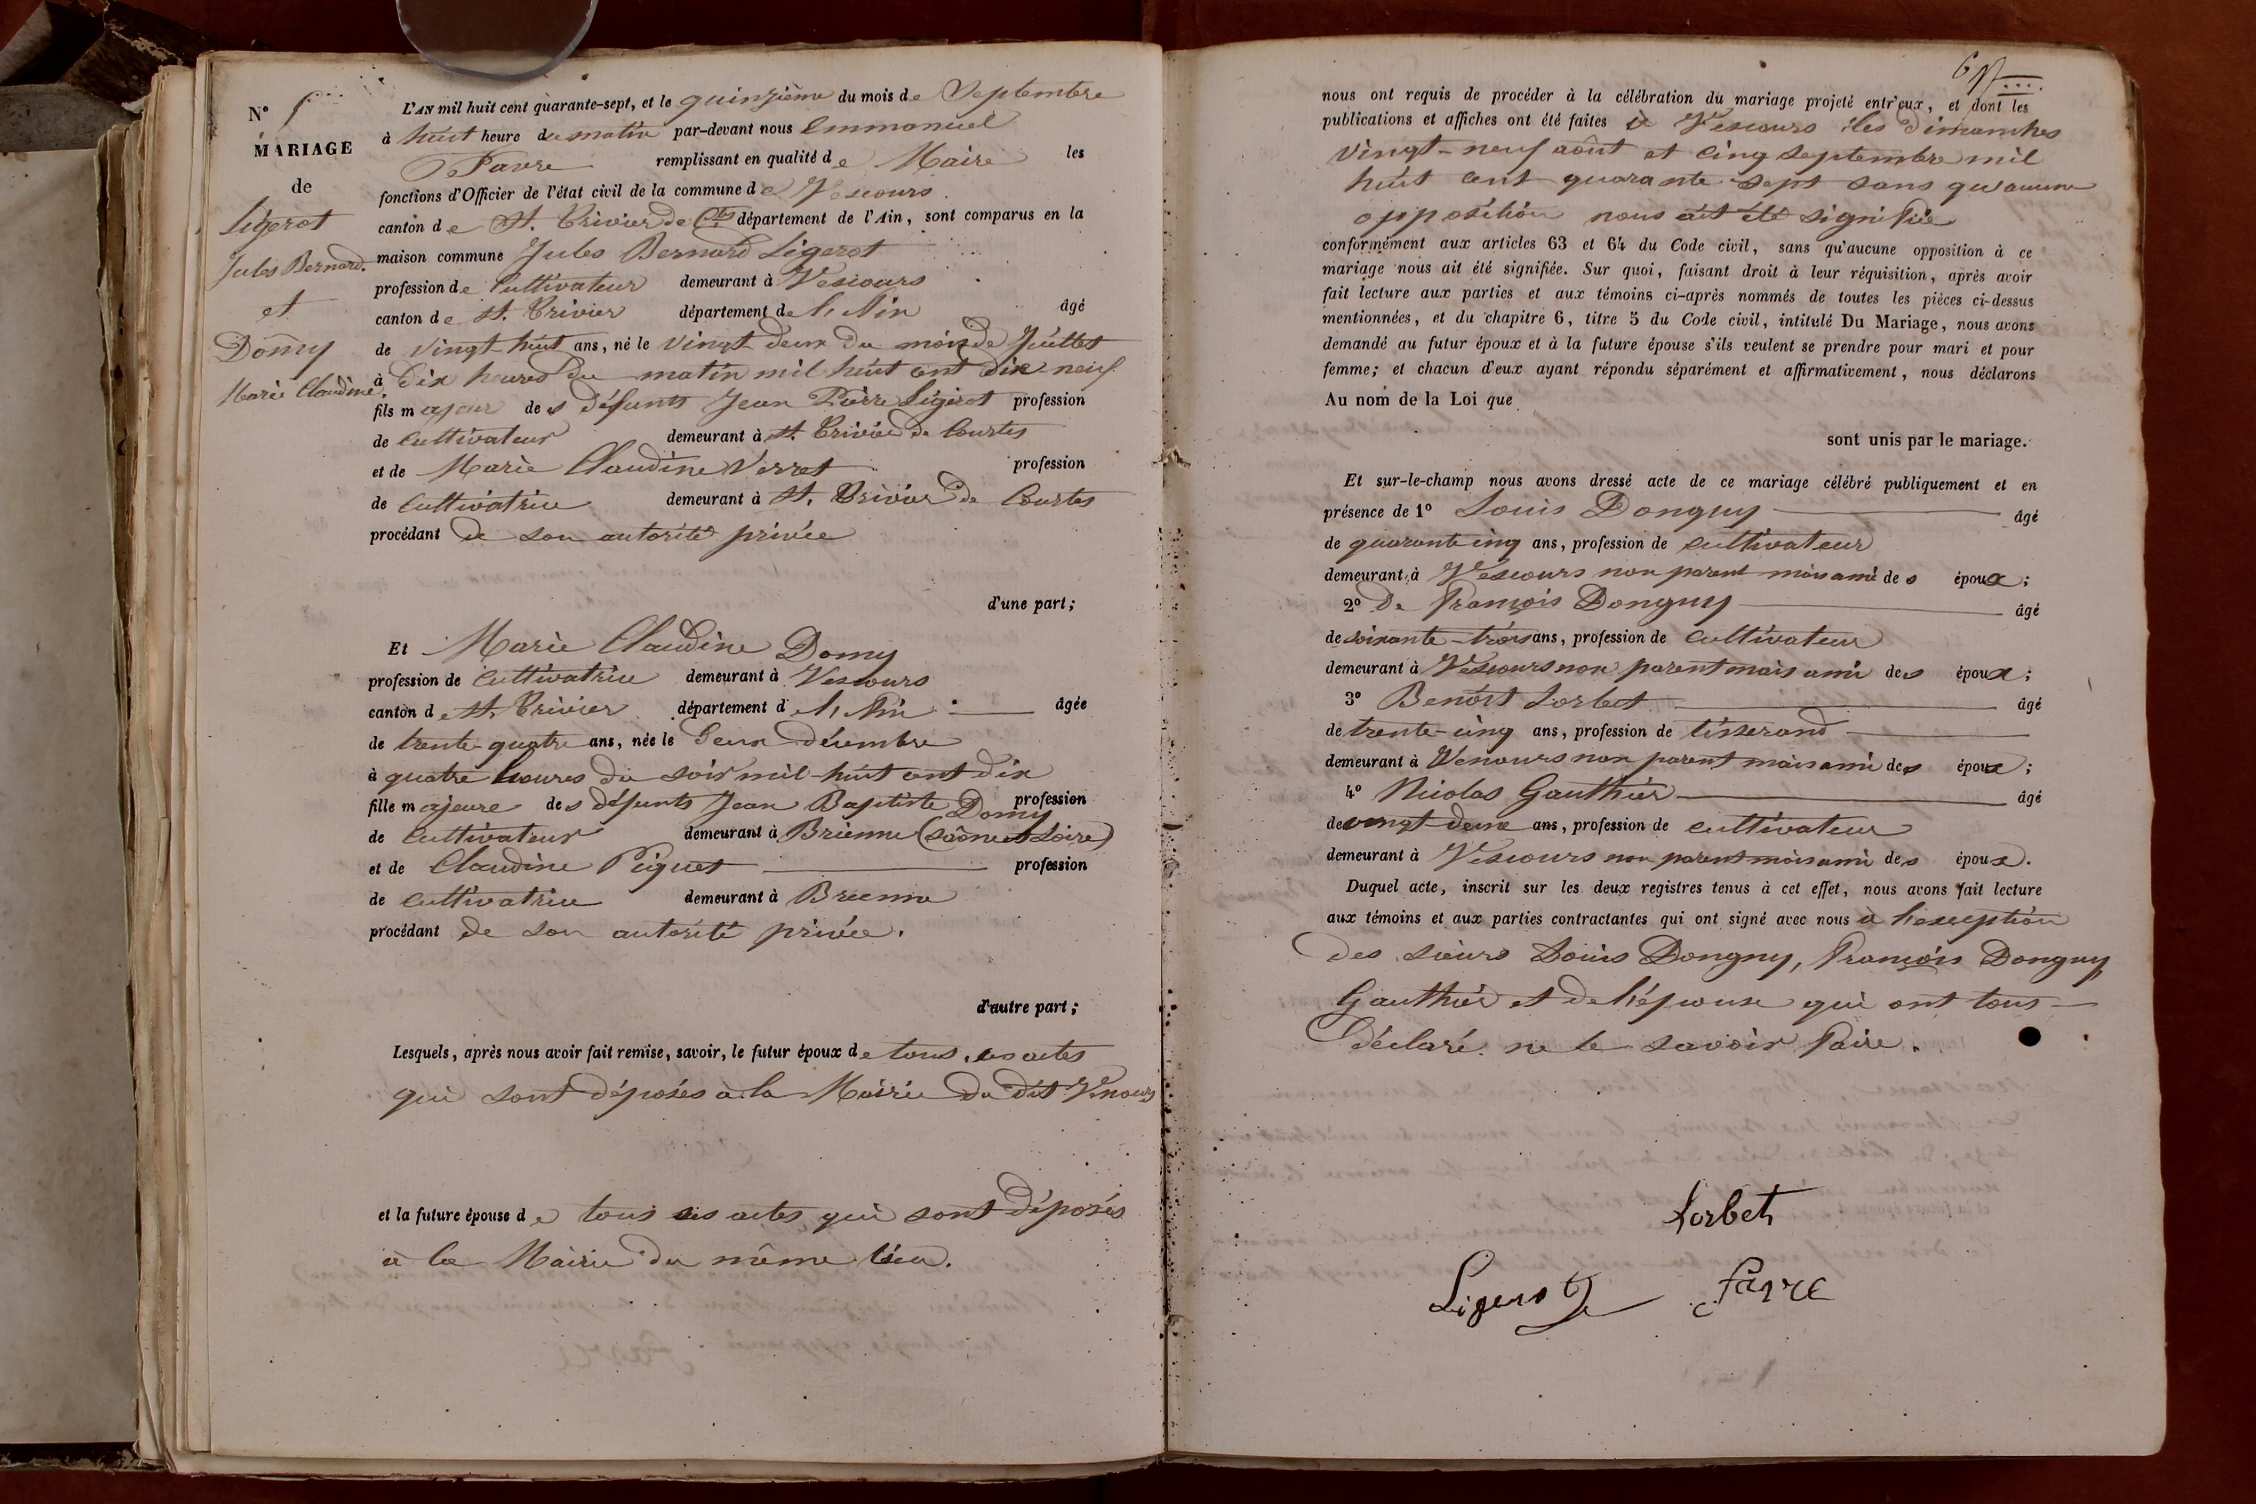 N°
MARIAGE
de
Ligerot
Jules Bernard.
et
Domy
Marie Claudine.
L'AN mil huit cent quarante-sept, et le quinzième du mois de Septembre
à huit heure du matin par-devant nous Emmanuel
Favre remplissant en qualité de Maire les
fonctions d'Officier de l'état civil de la commune de Vescours
canton de St. Trivier de Ctes département de l'Ain, sont comparus en la
maison commune Jules Bernard Ligerot
profession de Cultivateur demeurant à Vescours
canton de St. Trivier département de l'Ain âgé
de vingt-huit ans, né le vingt deux du mois de Juillet
à dix heures du matin mil huit cent dix neuf
fils majeur des défunts Jean Pierre Ligerot profession
de Cultivateur demeurant à St. Trivier de Courtes
et de Marie Claudine Verret profession
de Cultivatrice demeurant à St. Trivier de Courtes
procédant de son autorité privée
d'une part;
Et Marie Claudine Domy
profession de Cultivatrice demeurant à Vescours
canton de St. Trivier département de l'Ain âgée
de trente-quatre ans, née le deux décembre
à quatre heures du soir mil-huit cent dix
fille majeure des défunts Jean Baptiste Domy profession
de Cultivateur demeurant à Brienne (Saône et Loire)
et de Claudine Piquet profession
de Cultivatrice demeurant à Brienne
procédant de son autorité privée.
d'autre part;
Lesquels, après nous avoir fait remise, savoir, le futur époux de tous ses actes
qui sont déposés à la Mairie du dit Vescours
et la future épouse de tous ses actes qui sont déposés
à la Mairie du même lieu.
nous ont requis de procéder à la célébration du mariage projeté entr'eux, et dont les
publications et affiches ont été faites à Vescours les dimanches
vingt-neuf août et cinq septembre mil
huit cent quarante sept sans qu'aucune
opposition nous ait été signifiée
conformément aux articles 63 et 64 du Code civil, sans qu'aucune opposition à ce
mariage nous ait été signifiée. Sur quoi, faisant droit à leur réquisition, après avoir
fait lecture aux parties et aux témoins ci-après nommés de toutes les pièces ci-dessus
mentionnées, et du chapitre 6, titre 5 du Code civil, intitulé Du Mariage, nous avons
demandé au futur époux et à la future épouse s'ils veulent se prendre pour mari et pour
femme; et chacun d'eux ayant répondu séparément et affirmativement, nous déclarons
Au nom de la Loi que
sont unis par le mariage.
Et sur-le-champ nous avons dressé acte de ce mariage célébré publiquement et en
présence de 1° Louis Donguy âgé
de quarante cinq ans, profession de cultivateur
demeurant à Vescours non parent mais ami des époux;
2° de François Donguy âgé
de soixante-trois ans, profession de Cultivateur
demeurant à Vescours non parent mais ami des époux;
3° Benoît Lorbet âgé
de trente-cinq ans, profession de tisserand
demeurant à Vescours non parent mais ami des époux;
4° Nicolas Gauthier âgé
de vingt-deux ans, profession de cultivateur
demeurant à Vescours non parent mais ami des époux.
Duquel acte, inscrit sur les deux registres tenus à cet effet, nous avons fait lecture
aux témoins et aux parties contractantes qui ont signé avec nous à l'exception
des sieurs Louis Donguy, François Donguy
Gauthier et de l'épouse qui ont tous
déclaré ne le savoir faire.
Lorbet
Ligerot Favre